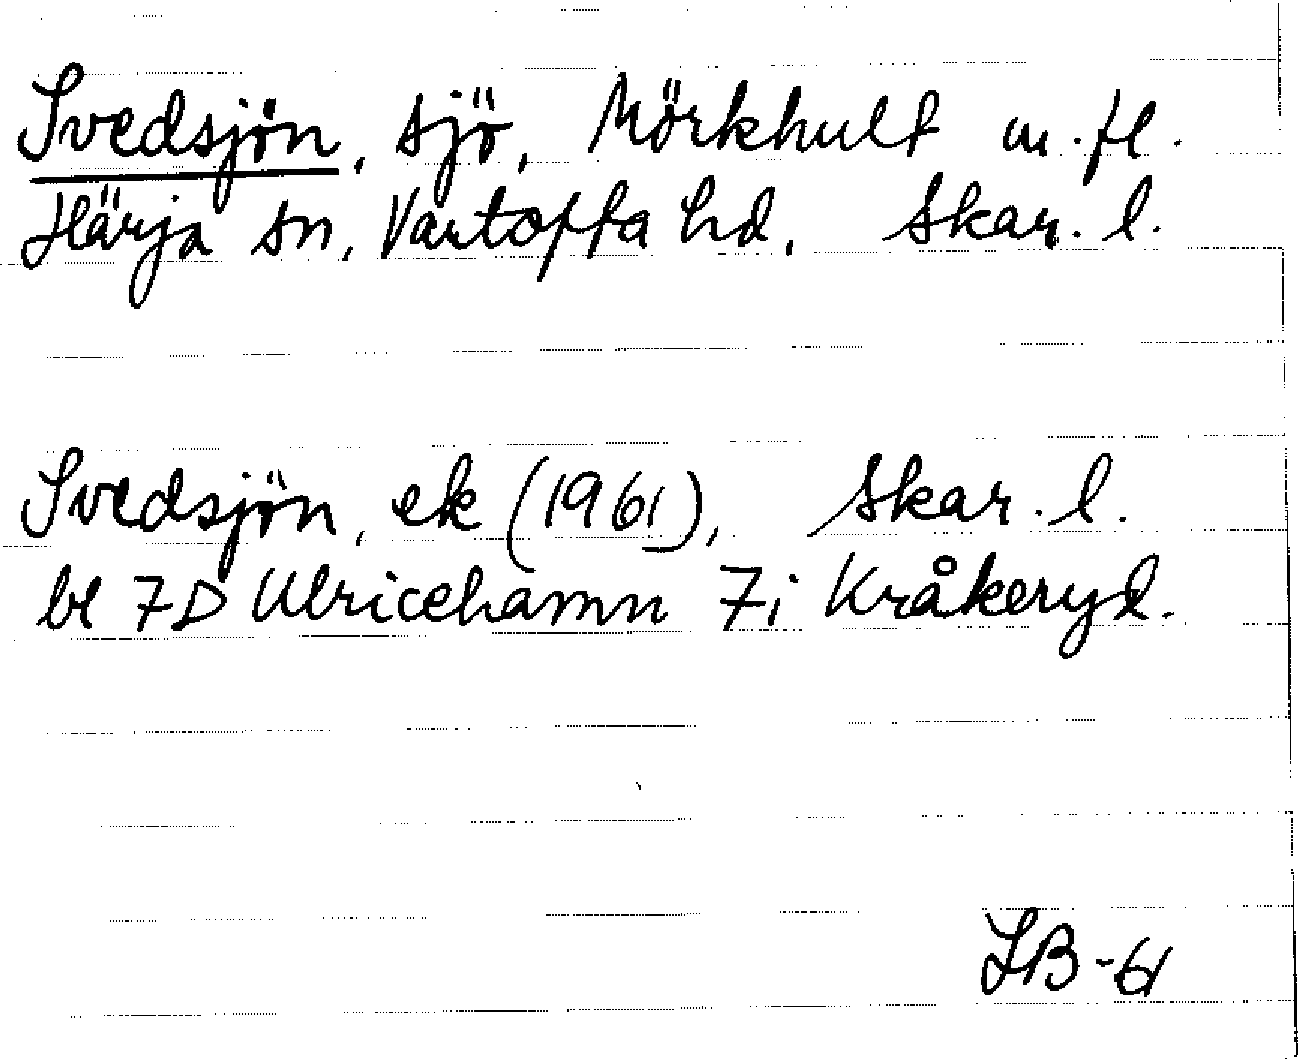 Svedsjön, sjö, Mörkhult m.fl.
Härja sn, Vartofta hd, Skar. l.
Svedsjön, ek (1961), Skar. l.
bl 7D Ulricehamn 7i Kråkeryd.
LB-61